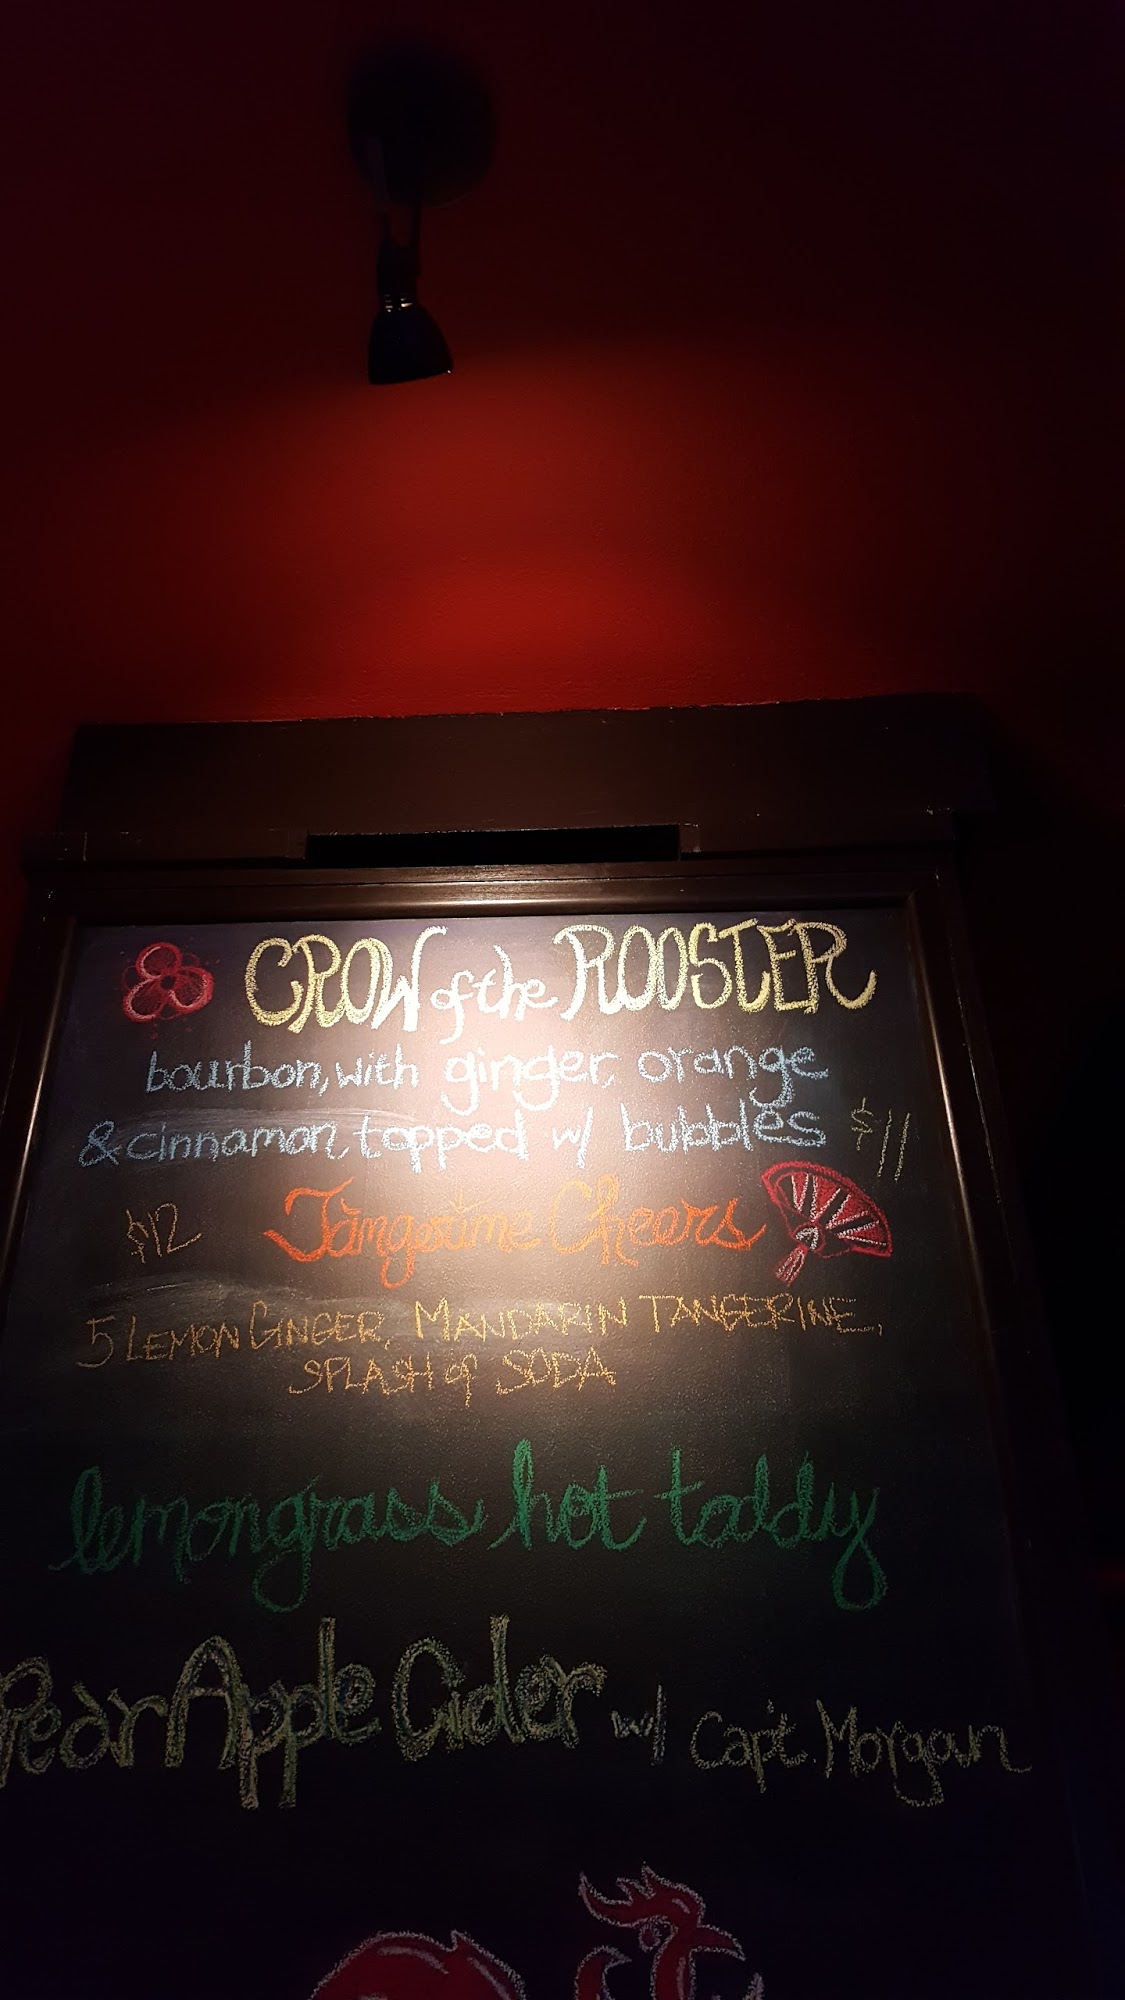 CROW of the ROOSTER
bourbon, with ginger, orange
& cinnamon topped w/ bubbles $11
$12 Tangotime Cheers
5 LEMON GINGER, MANDARIN TANGERINE,
SPLASH of SODA
lemongrass hot toddy
Pear Apple Cider w/ Capt. Morgan